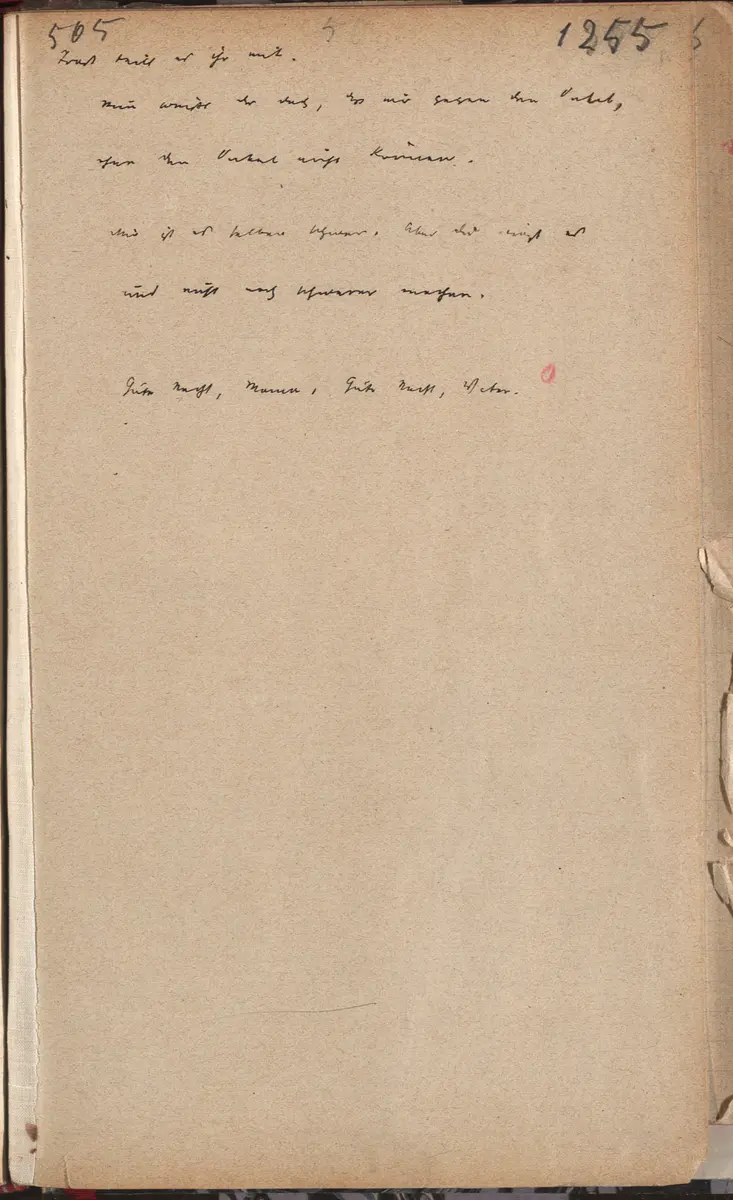 505 5 1255
teilt es ihr mit.
Nun weisst du doch, dass wir gegen den Onkel,
ohne den Onkel nicht können.
Mir ist es selber schwer. Aber du musst es
und nicht noch schwerer machen.
Gute Nacht, Mama, Gute Nacht, Vater.